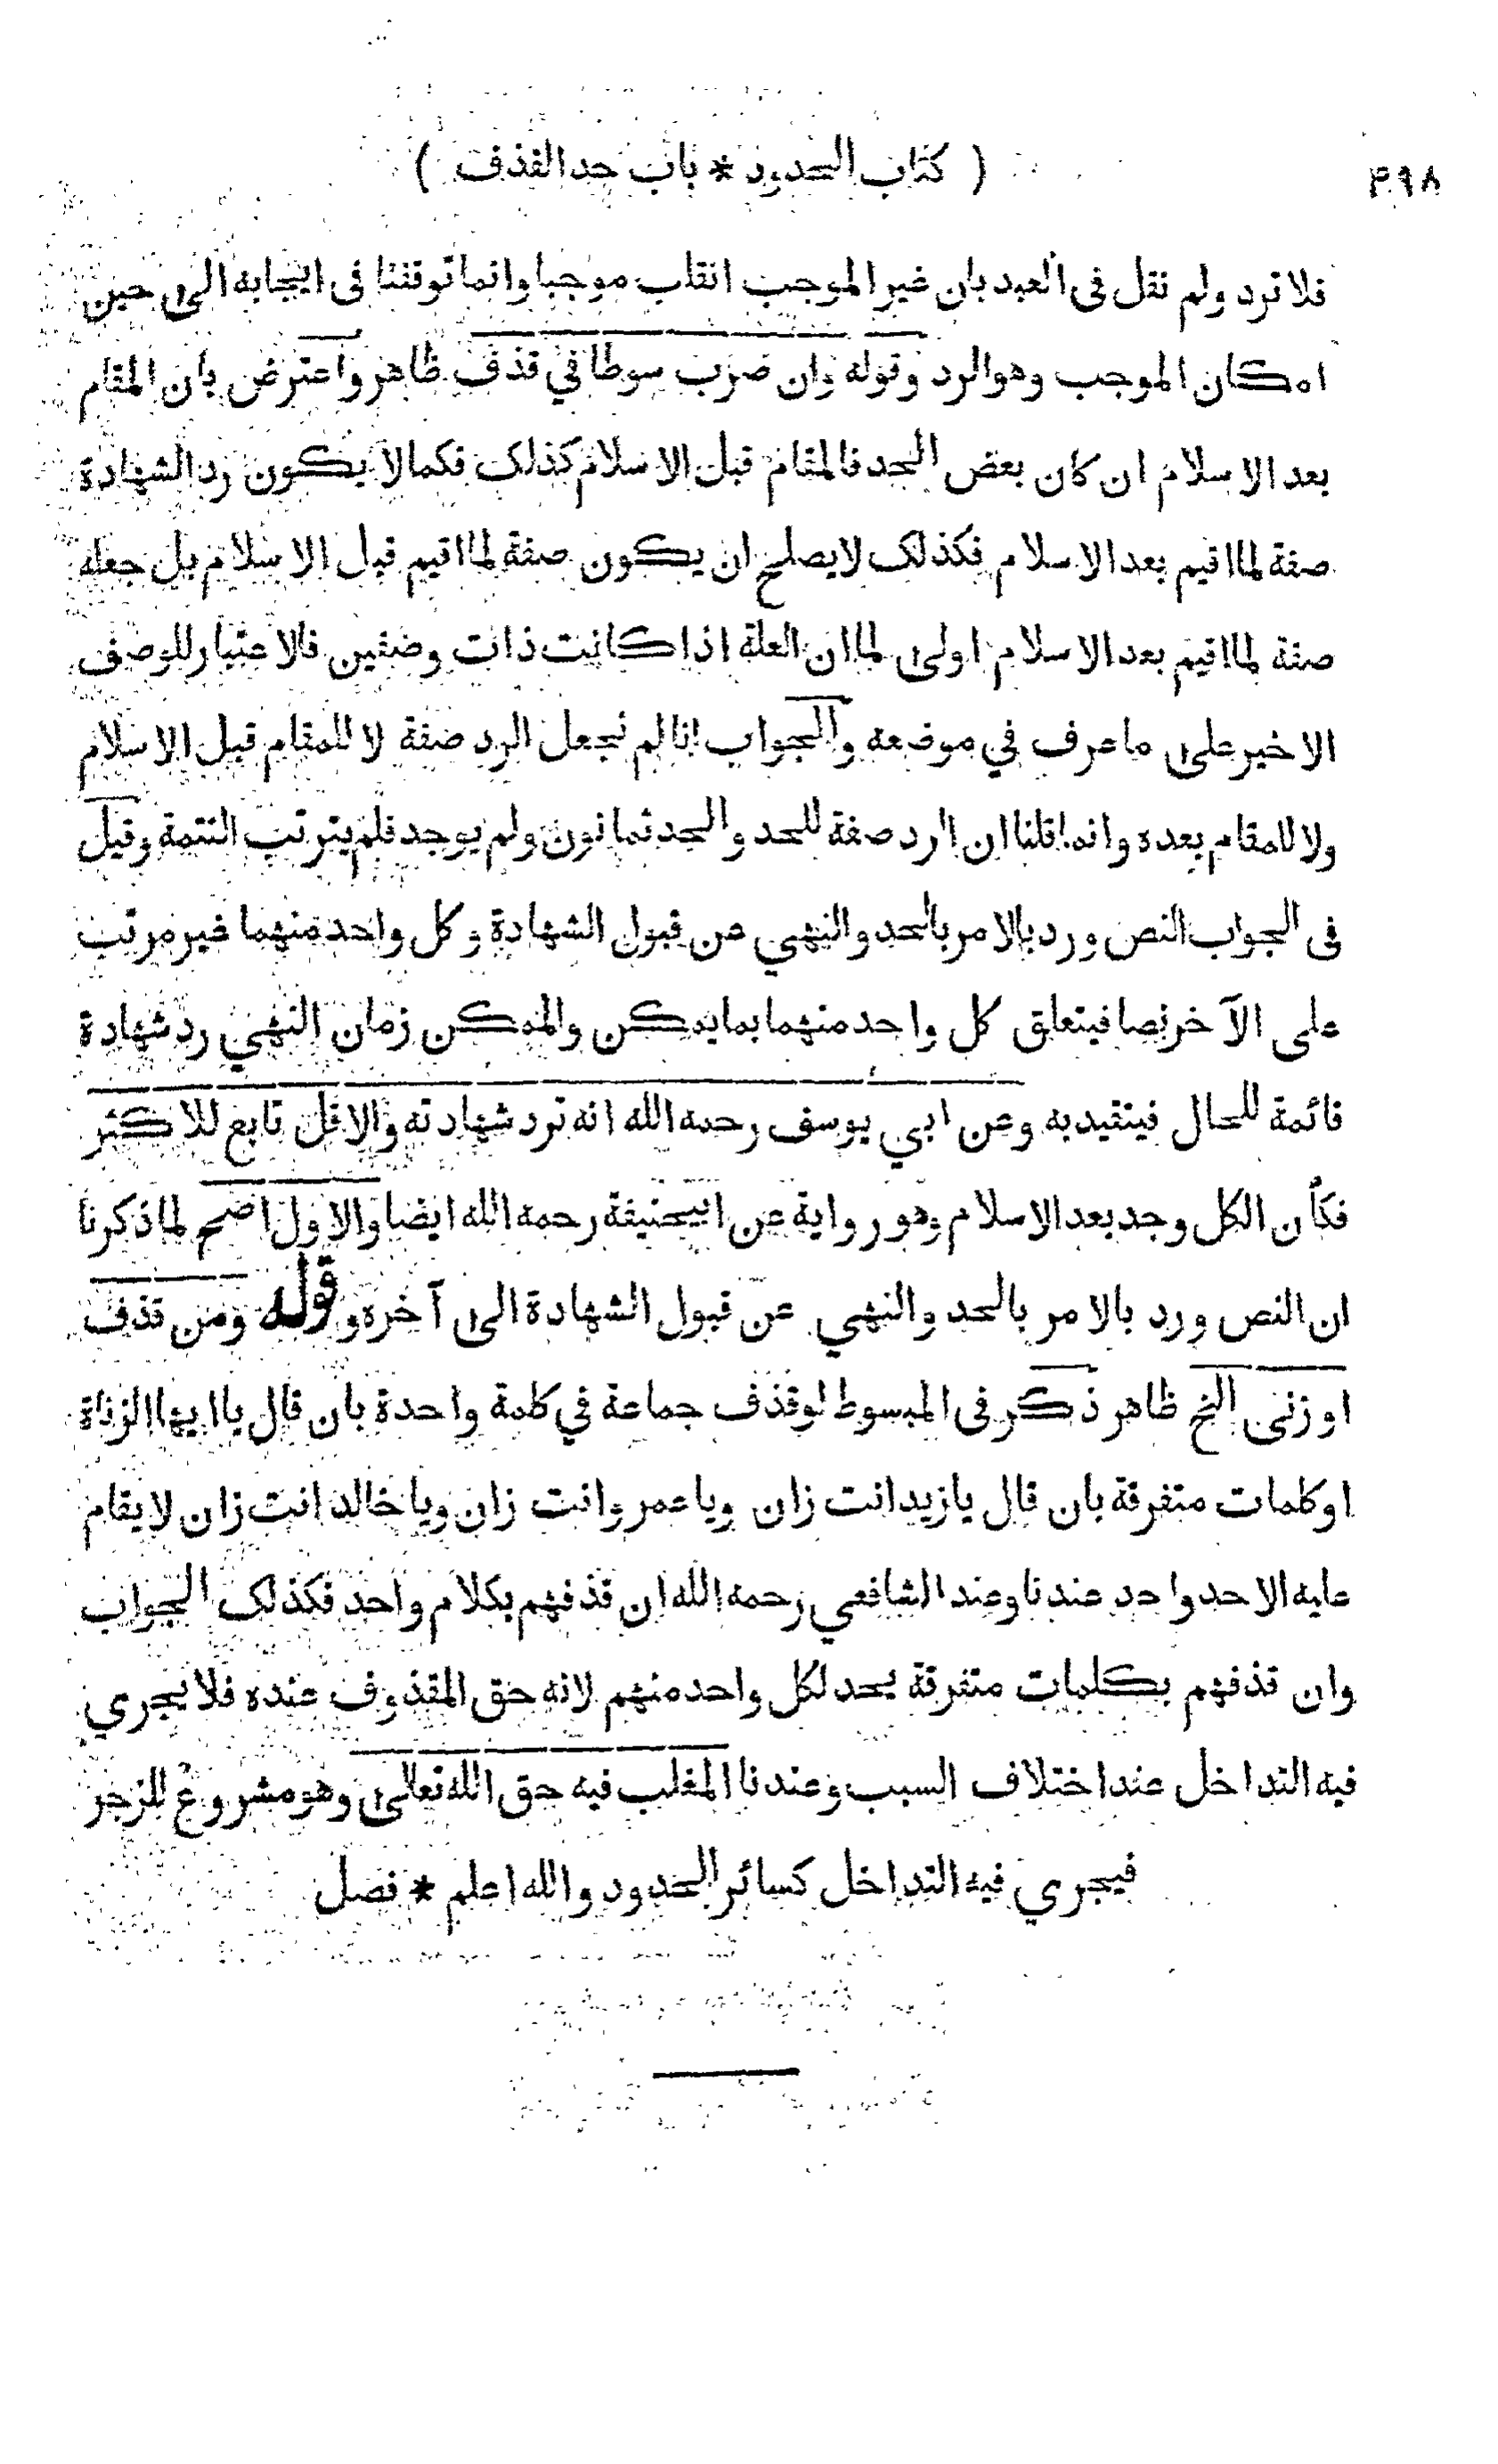 ( كتاب الحدود * باب حد القذف ) ۴۹۸
فلا ترد ولم نقل فى العبد بان غير الموجب انقلب موجبا وانما توقفنا فى ايجابه الى حين
امكان الموجب وهو الرد وقوله وان ضرب سوطا في قذف ظاهر واعترض بان المقام
بعد الاسلام ان كان بعض الحد فالمقام قبل الاسلام كذلك فكما لا يكون رد الشهادة
صفة لما اقيم بعد الاسلام فكذلك لا يصلح ان يكون صفة لما اقيم قبل الاسلام بل جعله
صفة لما اقيم بعد الاسلام اولى لما ان العلة اذا كانت ذات وصفين فالاعتبار للوصف
الاخير على ما عرف في موضعه والجواب انا لم نجعل الرد صفة لا للمقام قبل الاسلام
ولا للمقام بعده وانما قلنا ان الرد صفة للحد والحد ثمانون ولم يوجد فلم يترتب التتمة وقيل
فى الجواب النص ورد بالامر بالحد والنهي عن قبول الشهادة وكل واحد منهما غير مرتب
على الآخر نصا فيتعلق كل واحد منهما بما يمكن والممكن زمان النهي رد شهادة
قائمة للحال فيتقيد به وعن ابي يوسف رحمه الله انه ترد شهادته والاقل تابع للاكثر
فكأن الكل وجد بعد الاسلام وهو رواية عن ابيحنيفة رحمه الله ايضا والاول اصح لما ذكرنا
ان النص ورد بالامر بالحد والنهي عن قبول الشهادة الى آخره قوله ومن قذف
او زنى الخ ظاهر ذكر فى المبسوط لو قذف جماعة في كلمة واحدة بان قال يا ايها الزناة
او كلمات متفرقة بان قال يا زيد انت زان ويا عمرو انت زان ويا خالد انت زان لا يقام
عليه الا حد واحد عندنا وعند الشافعي رحمه الله ان قذفهم بكلام واحد فكذلك الجواب
وان قذفهم بكلمات متفرقة يحد لكل واحد منهم لانه حق المقذوف عنده فلا يجري
فيه التداخل عند اختلاف السبب وعندنا المغلب فيه حق الله تعالى وهو مشروع للزجر
فيجري فيه التداخل كسائر الحدود والله اعلم * فصل